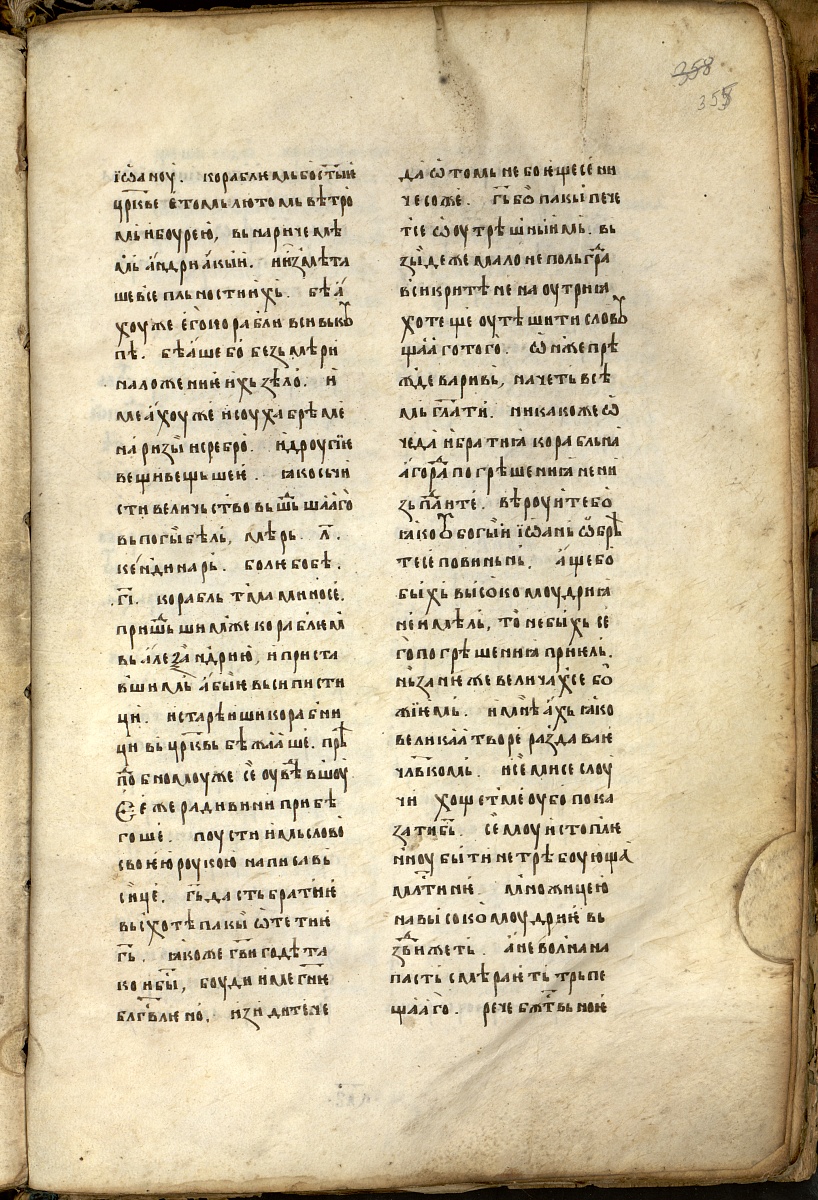 358
355
іѡаноу. кораблюмь бостыѥ
цркве ѥ томь лютомь вѣтро
мь и боурею, вь нарицемѣ
мь андриакыи. и измѣта
ше все пльности ихь. бѣа
хоу же ѥго корабли вси вькоу
пѣ. бѣаше бо безь мѣри
наложениѥ ихь зѣло. и
меахоу же и соуха брѣме
на ризы и сребро. и дроугіѥ
вещи вещьшеи. ꙗко сьчи
сти величьство вьшьшааго
вь погыбѣль, мѣрь. л҃.
кендинарь. болѥ бо бѣ.
г҃і. корабль тмами носе.
пришьшим же кораблѥм
вь алеѯандрию, и приста
вшимь абыѥ вьси писти
ци. и старѣиши кораб҃ни
ци вь црквь бѣжааше. прѣ
по҃бномоу же се оувѣвшоу
ѥѥже ради вини прибѣ
гоше. поусти имь слово
своѥю роукою написавь
сице. г҃ь дасть братиѥ
вьсхотѣ пакы ѿтетиѥ
г҃ь. ꙗкоже г҃ви годѣ та
ко и бы, боуди име г҃нѥ
блг҃влѥно. изидите че
да ѿ томь не боѥще се ни
чесоже. г҃ь бо пакы пече
тсе ѡ оутрѣшныимь. вь
зыдеже мало не поль гра
вси критѣне на оутриꙗ
хотеще оутѣшити словоу
щааго того. ѡн же прѣ
жде варивь, начеть всѣ
мь гл҃ати. никакоже ѡ
чеда и братиꙗ корабльна
аго ра погрѣшениꙗ мени
зьпаите. вѣроуите бо
ꙗко оу богыи іѡань ѡбрѣ
те се повиньнь, аще бо
быхь високомоудриꙗ
не имѣль, то не быхь се
го погрѣшениꙗ приѥль.
нь заниѥже величахсе бо
жіѥмь. и мнѣахь ꙗко
великаа творе раздаваѥ
чл҃вкомь. и се ми се слоу
чи хощет ме оубо пока
зати б҃ь. семоу истоплѥ
нноу быти не трѣбоующа
мл҃тинѥ. множицею
на високомоудриѥ вь
здвижеть. а неволина на
пасть смѣраѥть трьпе
щааго. рече бжт҃вьноѥ